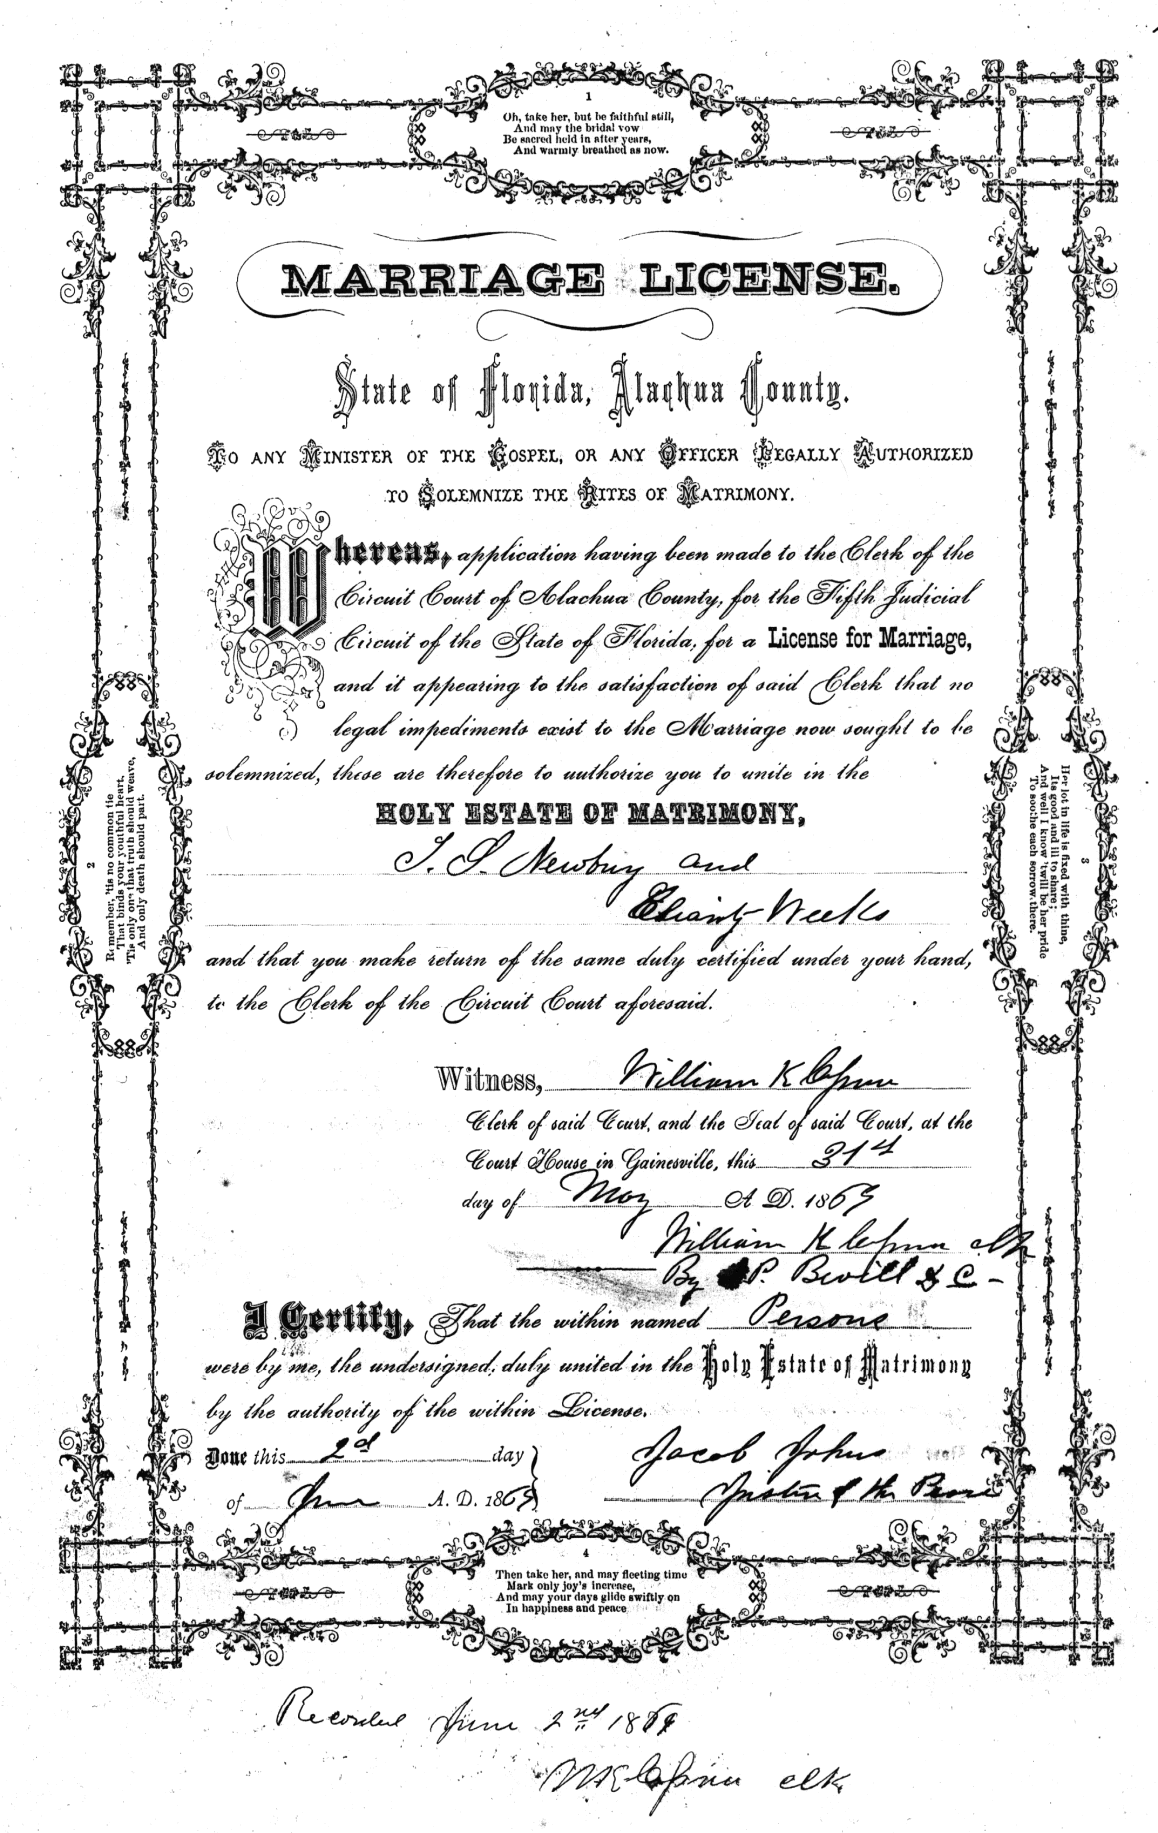 1
Oh, take her, but be faithful still,
And may the bridal vow
Be sacred held in after years,
And warmly breathed as now.
MARRIAGE LICENSE.
State of Florida, Alachua County.
TO ANY MINISTER OF THE GOSPEL, OR ANY OFFICER LEGALLY AUTHORIZED
TO SOLEMNIZE THE RITES OF MATRIMONY.
Whereas, application having been made to the Clerk of the
Circuit Court of Alachua County, for the Fifth Judicial
Circuit of the State of Florida, for a License for Marriage,
and it appearing to the satisfaction of said Clerk that no
legal impediments exist to the Marriage now sought to be
solemnized, these are therefore to authorize you to unite in the
HOLY ESTATE OF MATRIMONY,
Newbury and
Charity Weeks
and that you make return of the same duly certified under your hand,
to the Clerk of the Circuit Court aforesaid.
2
Remember, 'tis no common tie
That binds your youthful heart,
'Tis only one that truth should weave,
And only death should part.
3
Her lot in life is fixed with thine,
Its good and ill to share;
And well I know 'twill be her pride
To soothe each sorrow there.
Witness, William K
Clerk of said Court, and the Seal of said Court, at the
Court House in Gainesville, this 31st
day of May A D. 1869
William K clk
By P. Bevill D C
I Certify, That the within named Persons
were by me, the undersigned, duly united in the Holy Estate of Matrimony
by the authority of the within License.
Done this 2nd day
of June A. D. 1869
Jacob Johns
Justice of the Peace
4
Then take her, and may fleeting time
Mark only joy's increase,
And may your days glide swiftly on
In happiness and peace
Recorded June 2nd 1869
clk